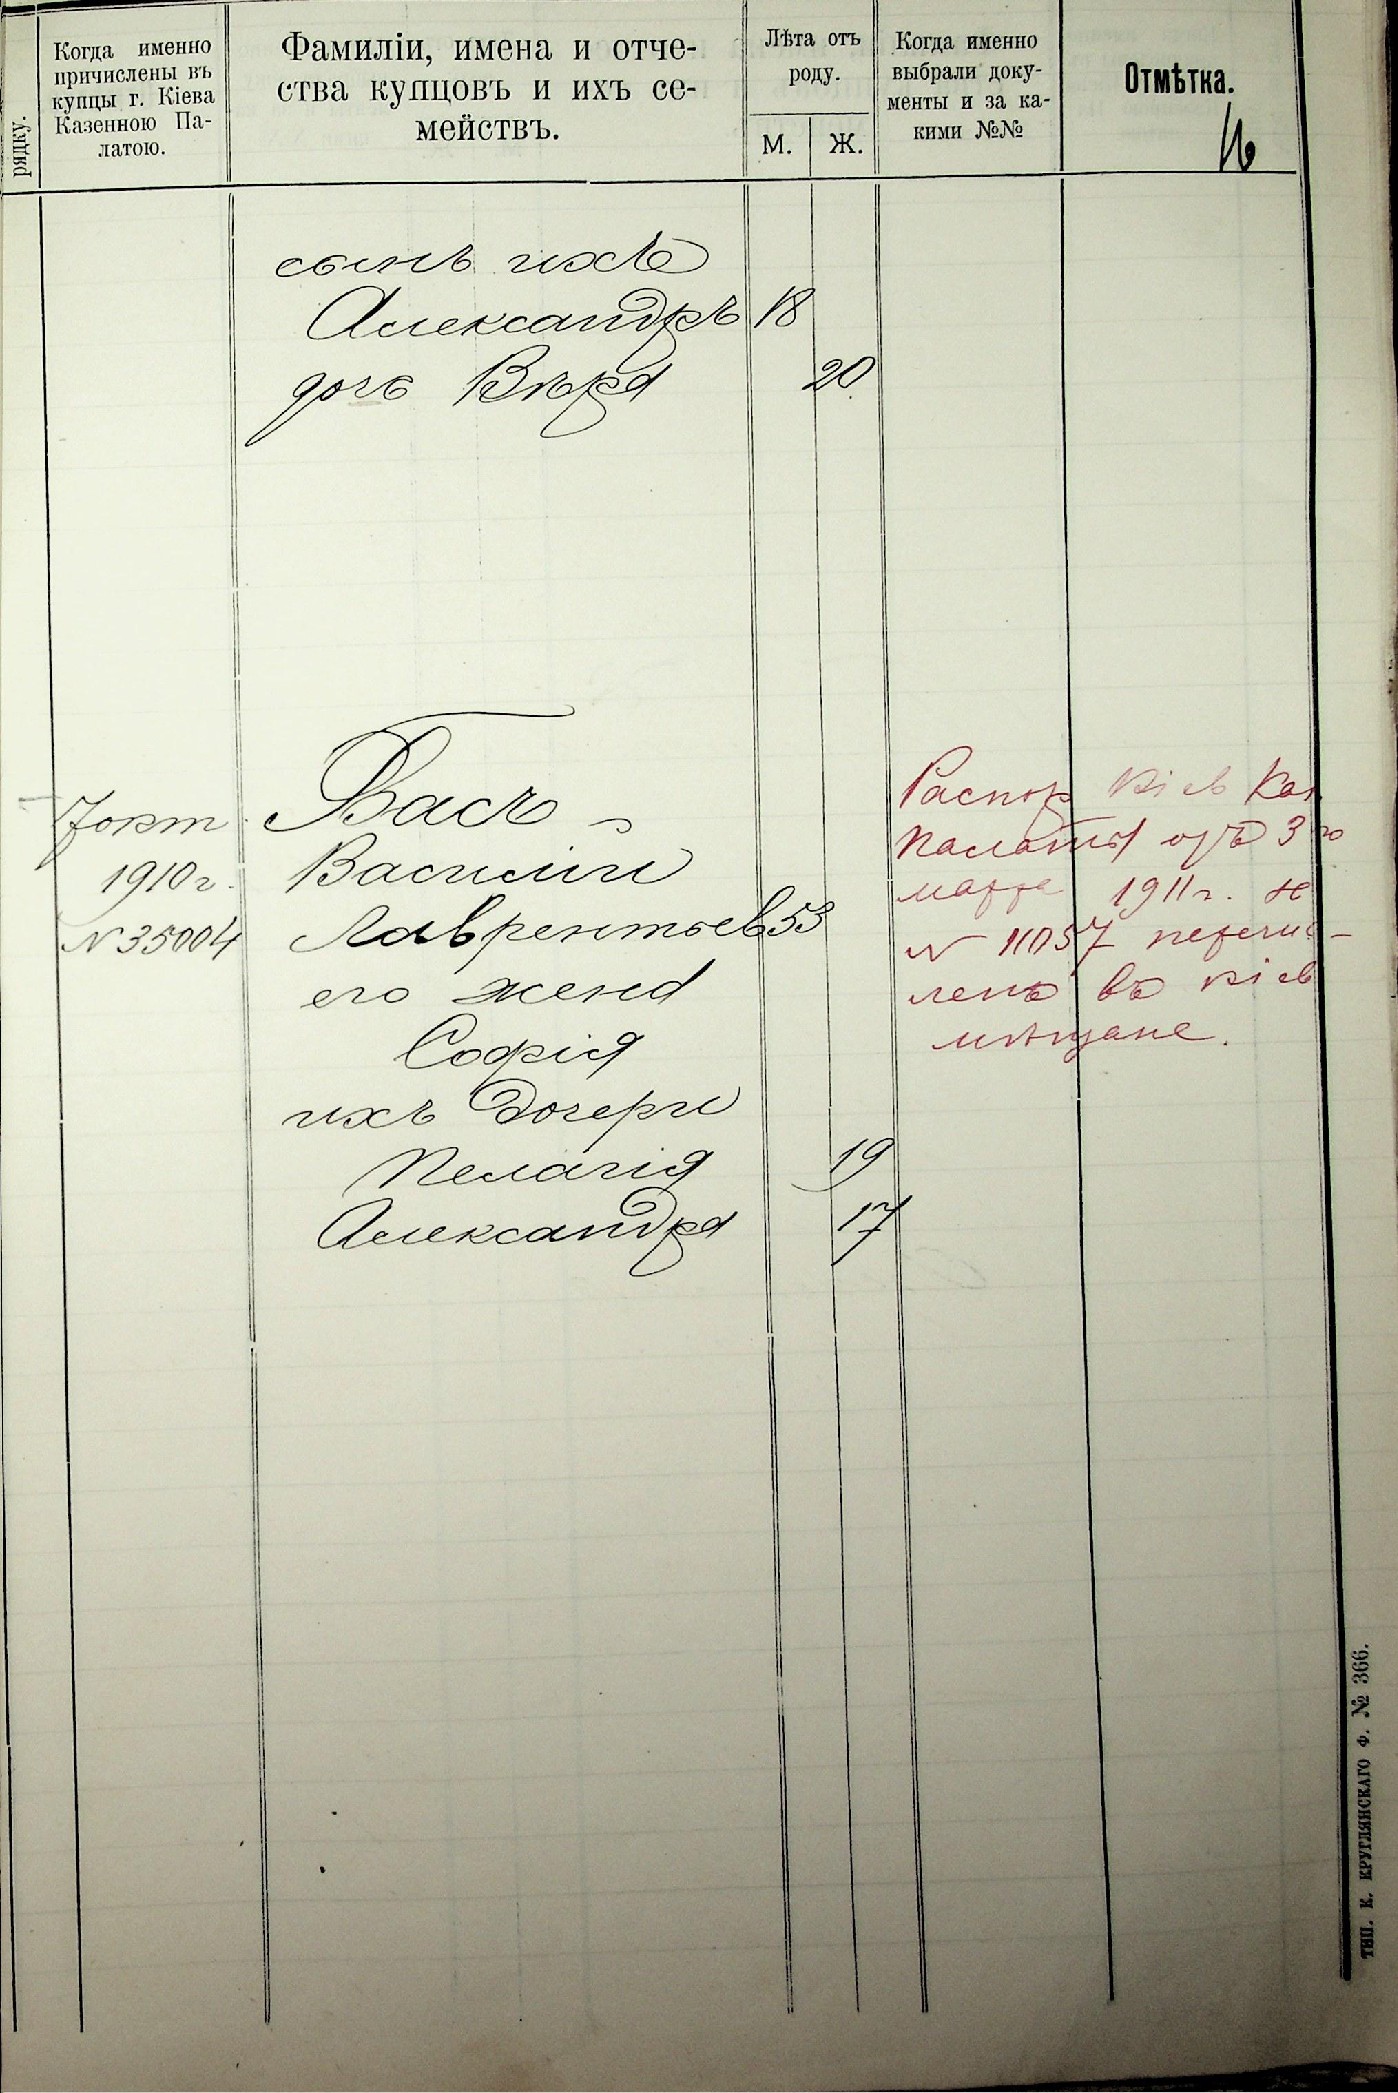 рядку.
Когда именно
причислены въ
купцы г. Кіева
Казенною Па-
латою.
Фамиліи, имена и отче-
ства купцовъ и ихъ се-
мействъ.
Лѣта отъ
роду.
М. Ж.
Когда именно
выбрали доку-
менты и за ка-
кими №№
Отмѣтка.
сынъ ихъ
Александръ 18
дочь Вѣра 20
Басъ
Василій
Лаврентьев 53
его жена
Софія
ихъ дочери
Пелагія 19
Александра 17
7 окт
1910 г.
N 35004
Распор Кіев Каз.
Палаты отъ 3 го
марта 1911 г. за
N 11057 перечис-
ленъ въ Кіев
мѣщане.
ТИП. К. КРУГЛЯНСКАГО Ф. № 366.